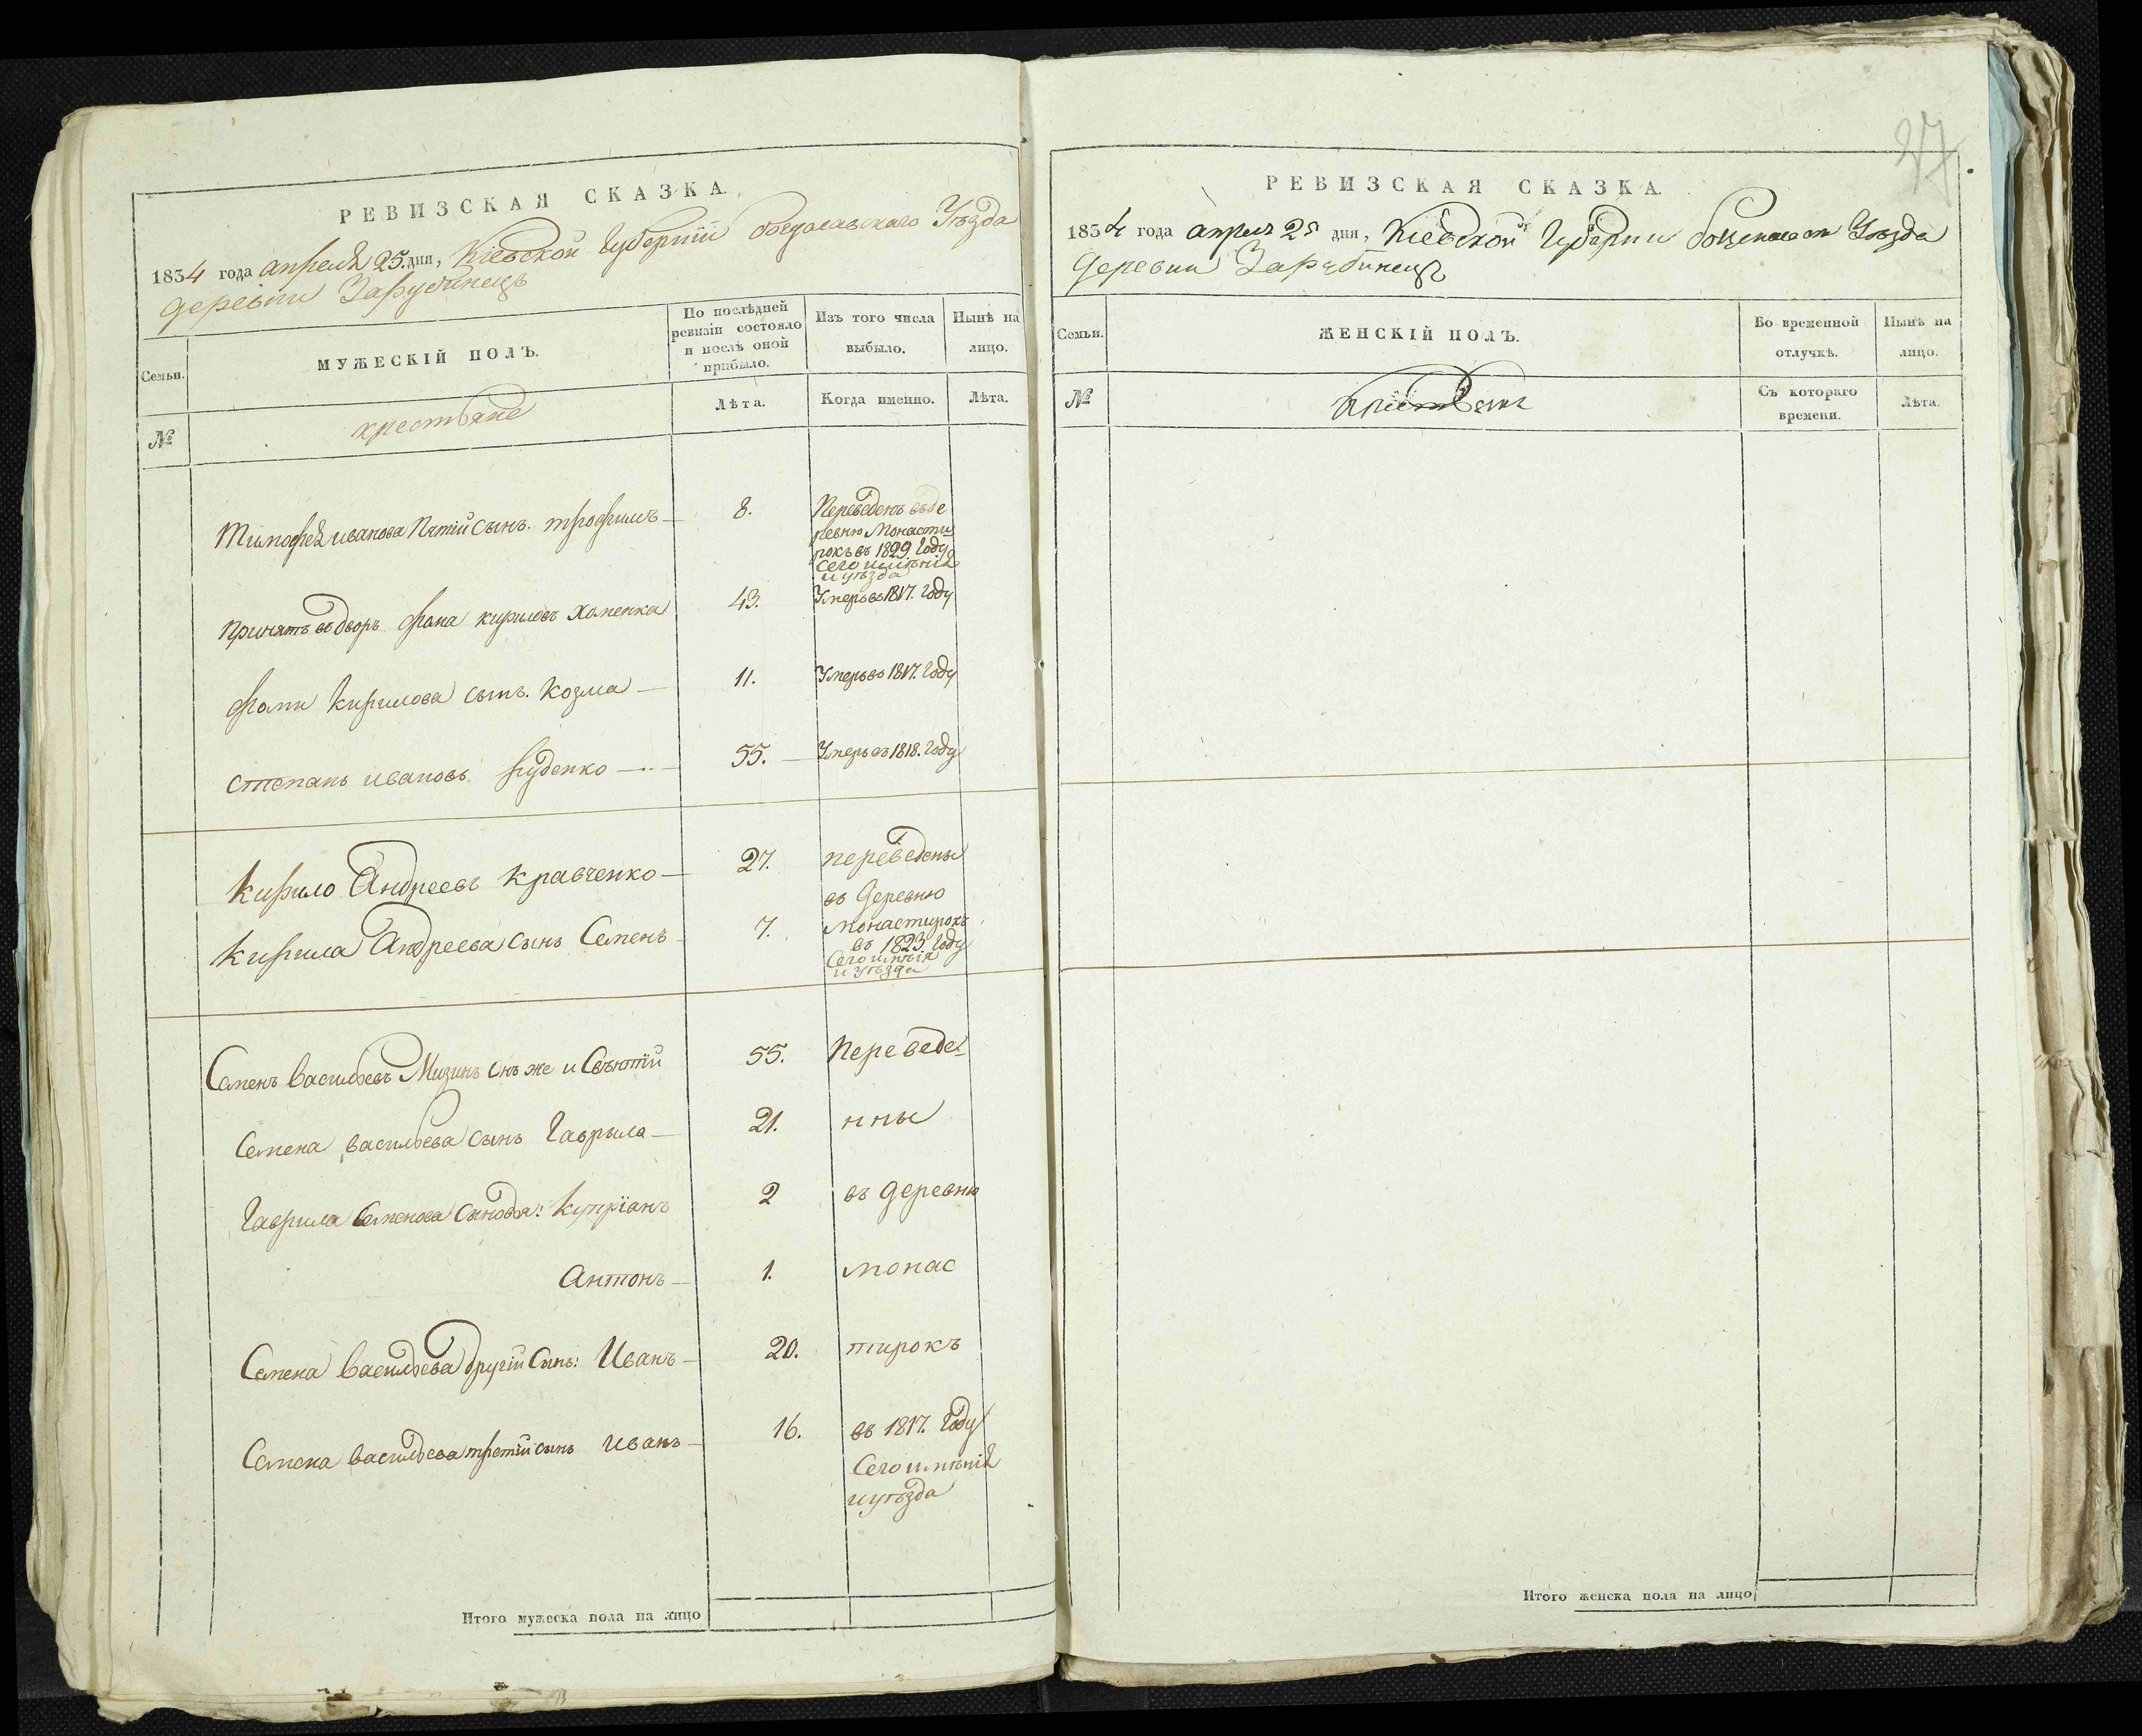 РЕВИЗСКАЯ СКАЗКА.
1834 года апреля 25. дня, Кіевской Губерніи богуславскаго Уѣзда
деревни Зарубинецъ
Семьи.
МУЖЕСКІЙ ПОЛЪ.
По послѣдней
ревизіи состояло
и послѣ оной
прибыло.
Изъ того числа
выбыло.
Нынѣ на
лицо.
№
крестьяне
Лѣта.
Когда именно.
Лѣта.
Тимофея иванова Пятий сынъ. трофимъ 8. Переведенъ въ де
ревню Монасти
рокъ въ 1829. Году
сего имѣнія
и уѣзда
Принятъ въ дворъ фома кириловъ Хоменка 43. Умеръ въ 1817. Году
фоми Кирилова сынъ. Козма 11. Умеръ въ 1817. Году
степанъ ивановъ руденко 55. Умеръ въ 1818. Году
Кирило Андреевъ Кравченко 27. переведены
въ деревню
Кирила Андреева сынъ Семенъ 7. Монастирокъ
въ 1823. Году
Сего имѣнія
и уѣзда
Семенъ Васильевъ Мизинъ онъ же и 55. Переведе
Семена васильева сынъ Гаврыла 21. нны
Гаврила Семенова Сыновья: Купріанъ 2 въ деревню
Антонъ 1. монас
Семена Васильева другій Сынъ: Иванъ 20. тирокъ
Семена васильева третій сынъ Иванъ 16. въ 1817. Году
Сего имѣнія
и уѣзда
Итого мужеска пола на лицо
27
РЕВИЗСКАЯ СКАЗКА.
1834 года апреля 25 дня, Кіевской Губерніи Уѣзда
деревни Зарубинецъ
Семьи.
ЖЕНСКІЙ ПОЛЪ.
Во временной
отлучкѣ.
Нынѣ на
лицо.
№
крестьяне
Съ котораго
времени.
Лѣта.
Итого женска пола на лицо